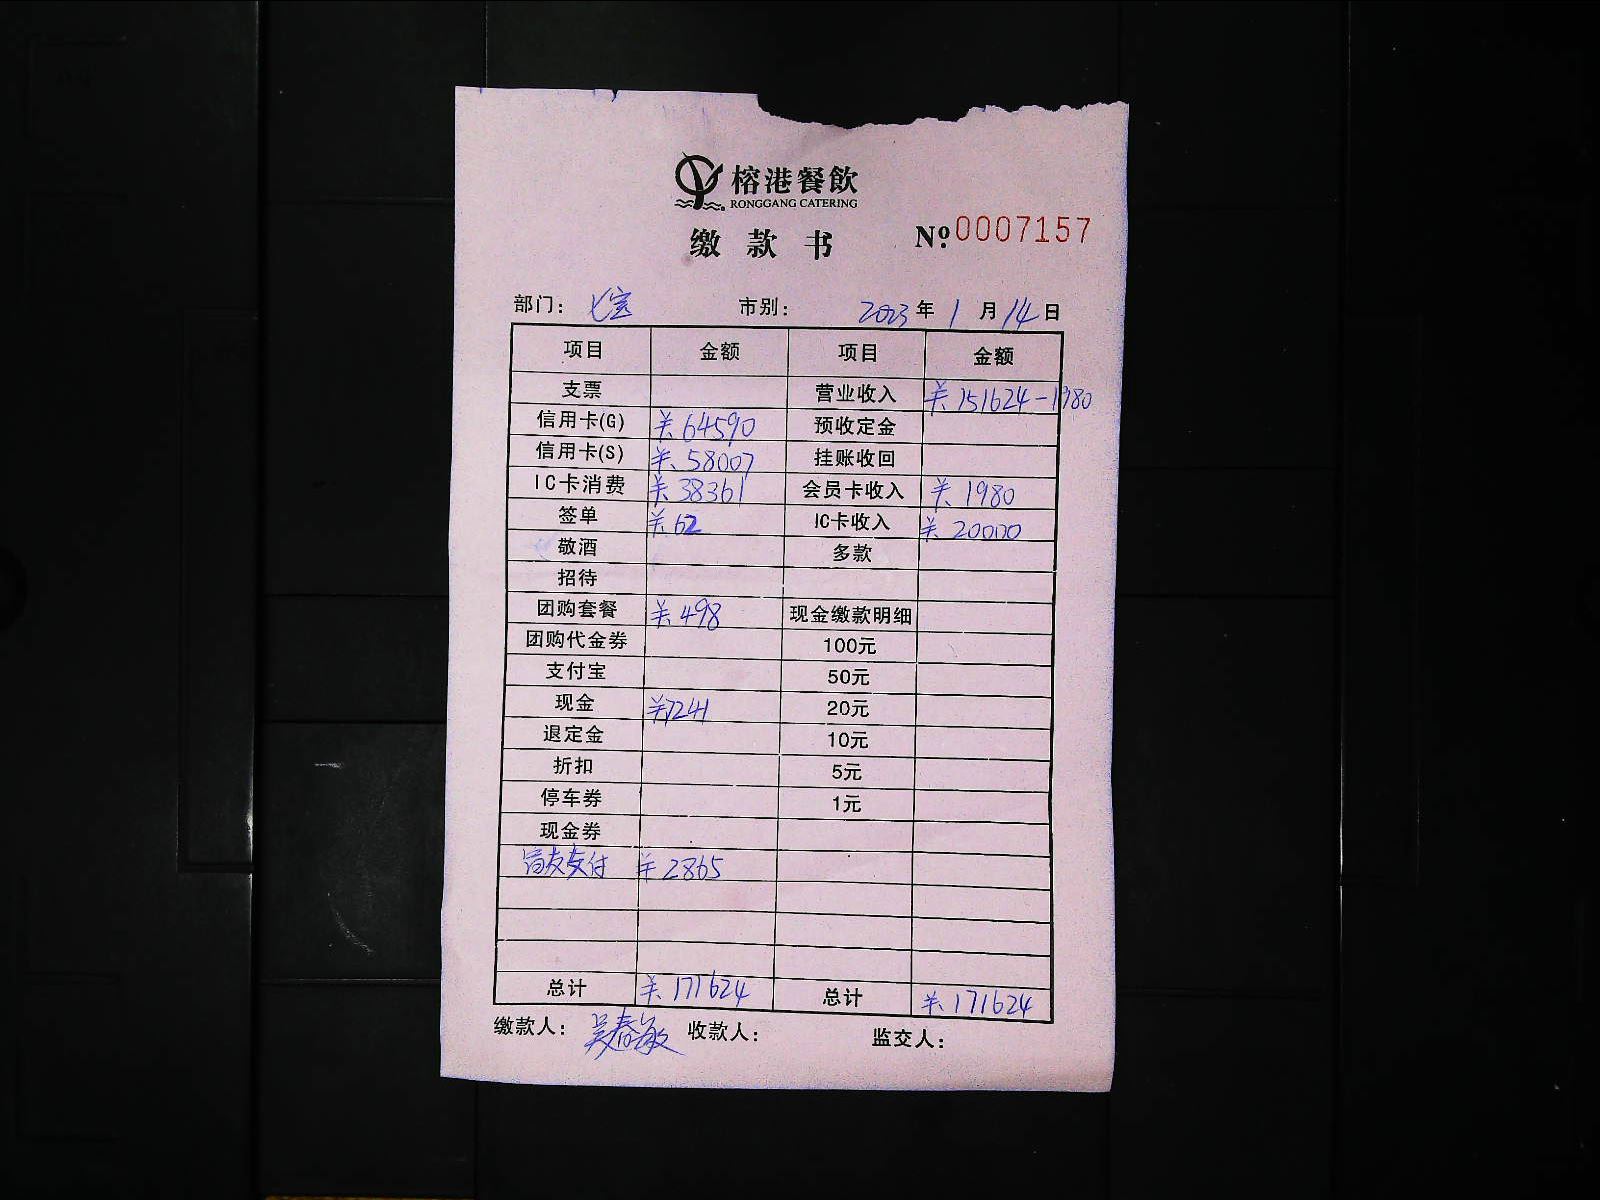 榕港餐飲
RONGGANG CATERING
缴款书 №0007157
部门：七宝 市别： 2023年1月14日
项目 金额 项目 金额
支票 营业收入 ¥151624-1980
信用卡(G) ¥64590 预收定金
信用卡(S) ¥58007 挂账收回
IC卡消费 ¥38361 会员卡收入 ¥1980
签单 ¥62 IC卡收入 ¥20000
敬酒 多款
招待
团购套餐 ¥498 现金缴款明细
团购代金券 100元
支付宝 50元
现金 ¥7241 20元
退定金 10元
折扣 5元
停车券 1元
现金券
支付 ¥2865
总计 ¥171624 总计 ¥171624
缴款人：吴春敏 收款人： 监交人：